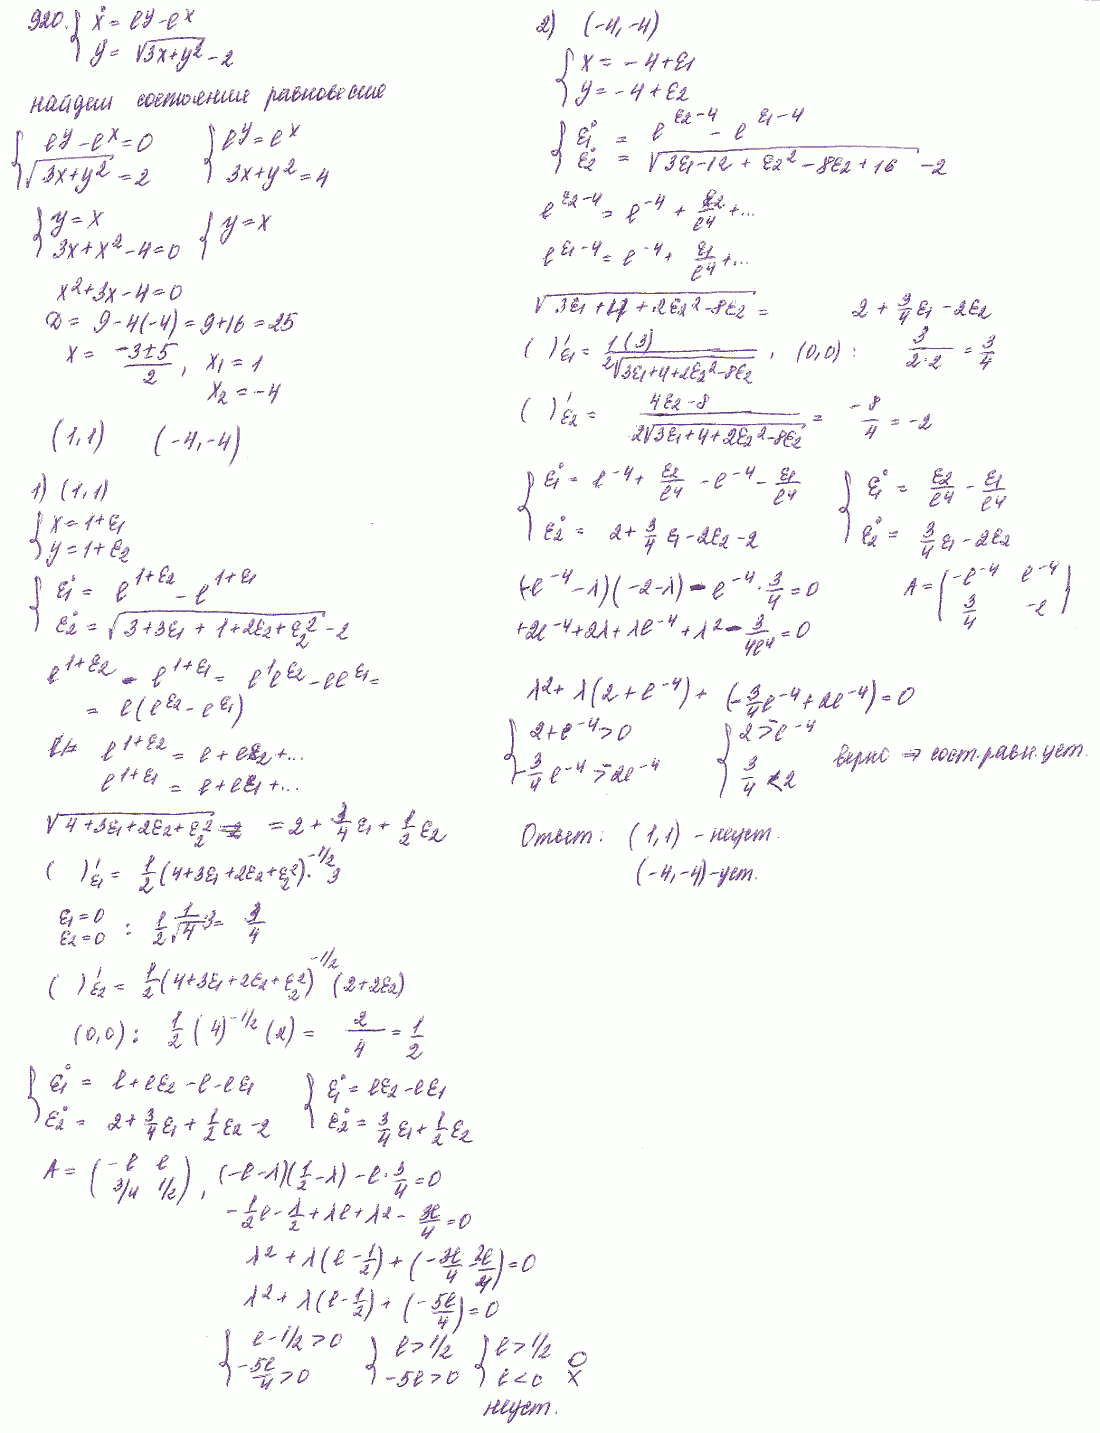 920. { ẋ = e^y - e^x
ẏ = √(3x+y²) - 2
найдем состояние равновесия
{ e^y - e^x = 0   { e^y = e^x
√(3x+y²) = 2   3x+y² = 4
{ y = x   { y = x
3x + x² - 4 = 0
x² + 3x - 4 = 0
D = 9 - 4(-4) = 9 + 16 = 25
x = (-3±5)/2 , x₁ = 1
x₂ = -4
(1,1)   (-4,-4)
1) (1,1)
{ x = 1+ε₁
y = 1+ε₂
{ ε̇₁ = e^(1+ε₂) - e^(1+ε₁)
ε̇₂ = √(3+3ε₁ + 1+2ε₂+ε₂²) - 2
e^(1+ε₂) - e^(1+ε₁) = e¹e^ε₂ - ee^ε₁ =
= e(e^ε₂ - e^ε₁)
e^(1+ε₂) = e + eε₂ + ...
e^(1+ε₁) = e + eε₁ + ...
√(4+3ε₁+2ε₂+ε₂²) = 2 + 3/4 ε₁ + 1/2 ε₂
( )'ε₁ = 1/2 (4+3ε₁+2ε₂+ε₂²)^(-1/2) · 3
ε₁=0
ε₂=0 : 1/2 1/√4 · 3 = 3/4
( )'ε₂ = 1/2 (4+3ε₁+2ε₂+ε₂²)^(-1/2) (2+2ε₂)
(0,0) : 1/2 (4)^(-1/2) (2) = 2/4 = 1/2
{ ε̇₁ = e + eε₂ - e - eε₁   { ε̇₁ = eε₂ - eε₁
ε̇₂ = 2 + 3/4 ε₁ + 1/2 ε₂ - 2   ε̇₂ = 3/4 ε₁ + 1/2 ε₂
A = ( -e e
3/4 1/2 ) , (-e-λ)(1/2-λ) - e · 3/4 = 0
- 1/2 e - λ/2 + λe + λ² - 3e/4 = 0
λ² + λ(e - 1/2) + (- 3e/4 - 2e/4) = 0
λ² + λ(e - 1/2) + (- 5e/4) = 0
{ e - 1/2 > 0   { e > 1/2   { e > 1/2
- 5e/4 > 0   -5e > 0   e < 0
неуст.
2) (-4,-4)
{ x = -4+ε₁
y = -4+ε₂
{ ε̇₁ = e^(ε₂-4) - e^(ε₁-4)
ε̇₂ = √(3ε₁-12 + ε₂² - 8ε₂+16) - 2
e^(ε₂-4) = e^-4 + ε₂/e⁴ + ...
e^(ε₁-4) = e^-4 + ε₁/e⁴ + ...
√(3ε₁ + 4 + 2ε₂² - 8ε₂) = 2 + 3/4 ε₁ - 2ε₂
( )'ε₁ = 1(3) / 2√(3ε₁+4+2ε₂²-8ε₂) , (0,0) : 3/(2·2) = 3/4
( )'ε₂ = (4ε₂-8) / 2√(3ε₁+4+2ε₂²-8ε₂) = -8/4 = -2
{ ε̇₁ = e^-4 + ε₂/e⁴ - e^-4 - ε₁/e⁴   { ε̇₁ = ε₂/e⁴ - ε₁/e⁴
ε̇₂ = 2 + 3/4 ε₁ - 2ε₂ - 2   ε̇₂ = 3/4 ε₁ - 2ε₂
(-e^-4 - λ)(-2-λ) - e^-4 · 3/4 = 0   A = ( -e^-4 e^-4
3/4 -2 )
+2e^-4 + 2λ + λe^-4 + λ² - 3/4e⁴ = 0
λ² + λ(2 + e^-4) + (- 3/4 e^-4 + 2e^-4) = 0
{ 2+e^-4 > 0   { 2 > -e^-4
- 3/4 e^-4 > 2e^-4   3/4 < 2   верно ⇒ сост. равн. уст.
Ответ: (1,1) - неуст.
(-4,-4) - уст.